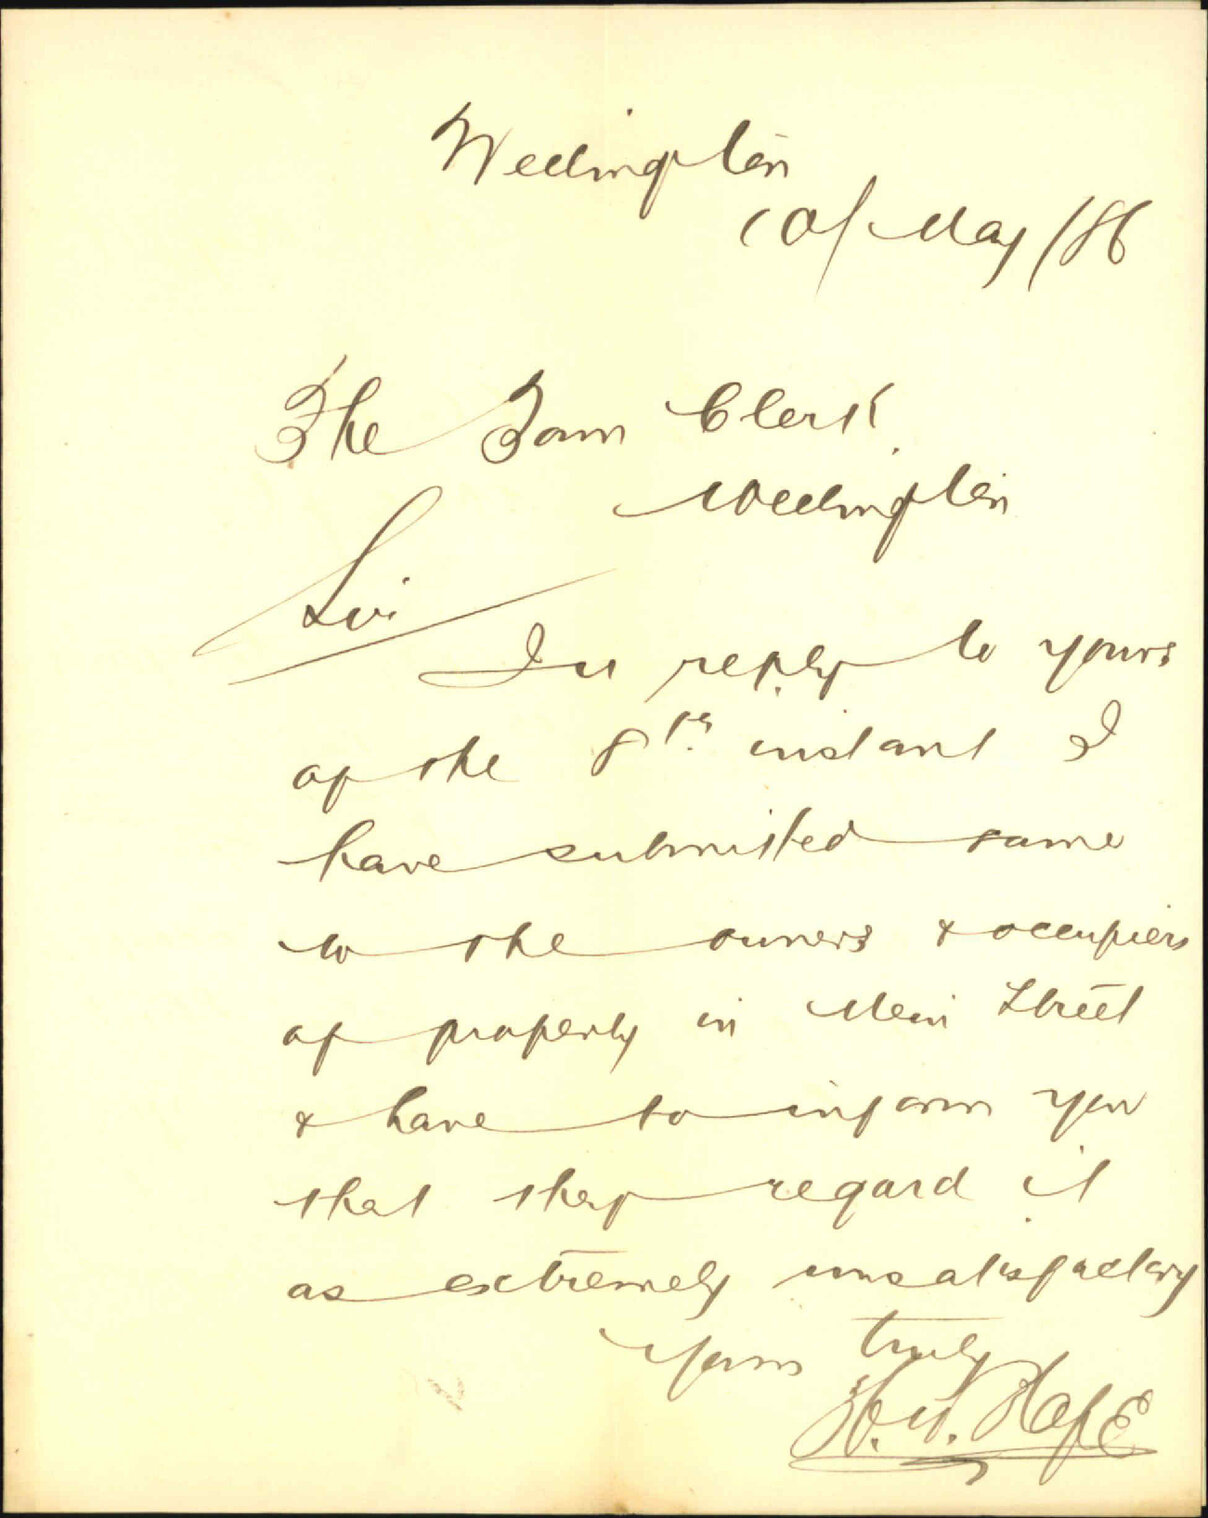 Wellington
10/ May /86
The Town Clerk
Wellington
Sir
In reply to yours
of the 8th instant I
have submitted same
to the owners & occupiers
of property in Mein Street
& have to inform you
that they regard it
as extremely unsatisfactory
Yours truly
Hope